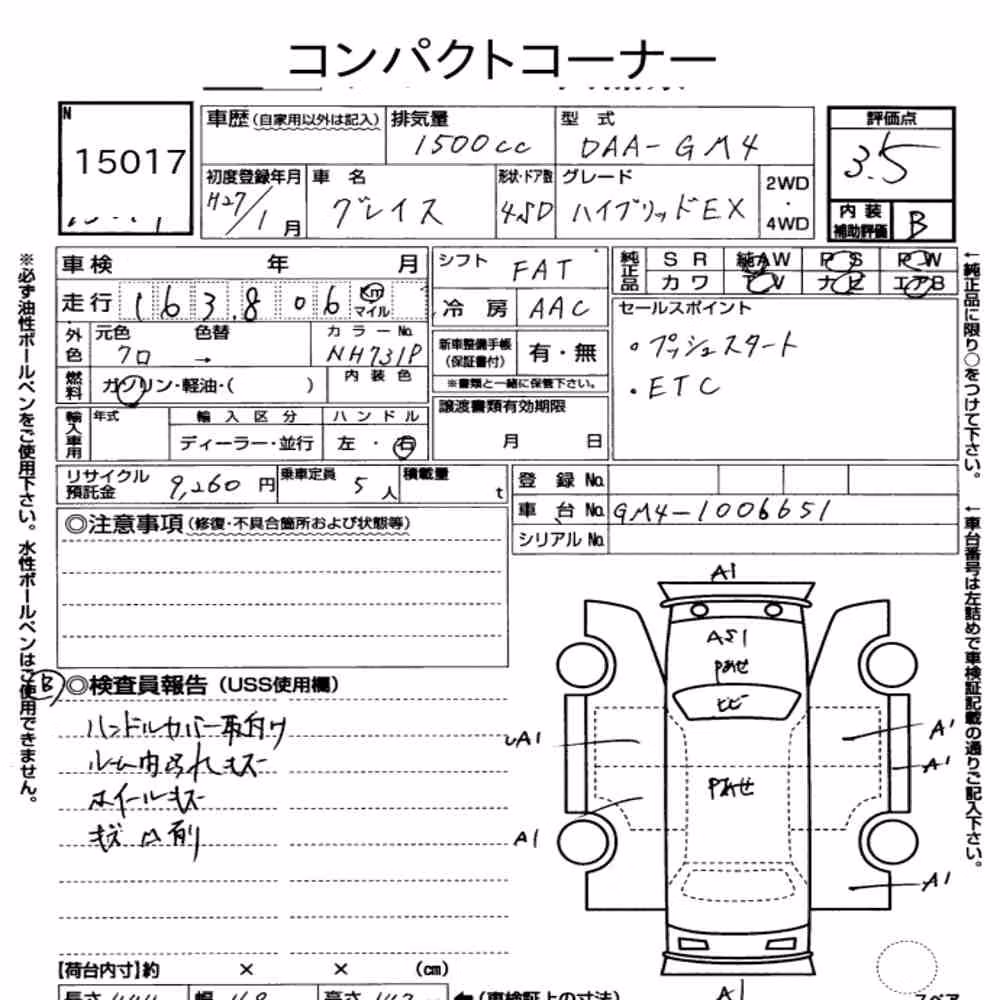 コンパクトコーナー
N
15017
車歴 (自家用以外は記入)
排気量
1500cc
型式
DAA-GM4
評価点
3.5
初度登録年月
H27/1月
車名
グレイス
形状・ドア数
4SD
グレード
ハイブリッドEX
2WD
・
4WD
内装
補助評価
B
車検 年 月
走行 163,806 Km マイル
外色
元色
クロ
色替
→
カラーNo.
NH731P
燃料
ガソリン・軽油・( )
内装色
輸入車用
年式
輸入区分
ディーラー・並行
ハンドル
左・右
シフト
FAT
冷房
AAC
新車整備手帳
(保証書付)
有・無
※書類と一緒に保管下さい。
譲渡書類有効期限
月 日
純正品
SR 純AW PS PW
カワ TV ナビ エアB
セールスポイント
・プッシュスタート
・ETC
リサイクル
預託金
9,260円
乗車定員
5人
積載量
t
登録No.
車台No.
GM4-1006651
シリアルNo.
◎注意事項 (修復・不具合箇所および状態等)
B
◎検査員報告 (USS使用欄)
ハンドルカバー取付け
ルーム内よごれキズ
ホイールキズ
キズ凹有
A1
AS1
Pあせ
ヒビ
A1
A1
A1
Pあせ
A1
A1
A1
【荷台内寸】約 × × (cm)
長さ
幅
高さ
(車検証上の寸法)
スペア
※必ず油性ボールペンをご使用下さい。水性ボールペンはご使用できません。
←純正品に限り○をつけて下さい。
←車台番号は左詰めで車検証記載の通りご記入下さい。